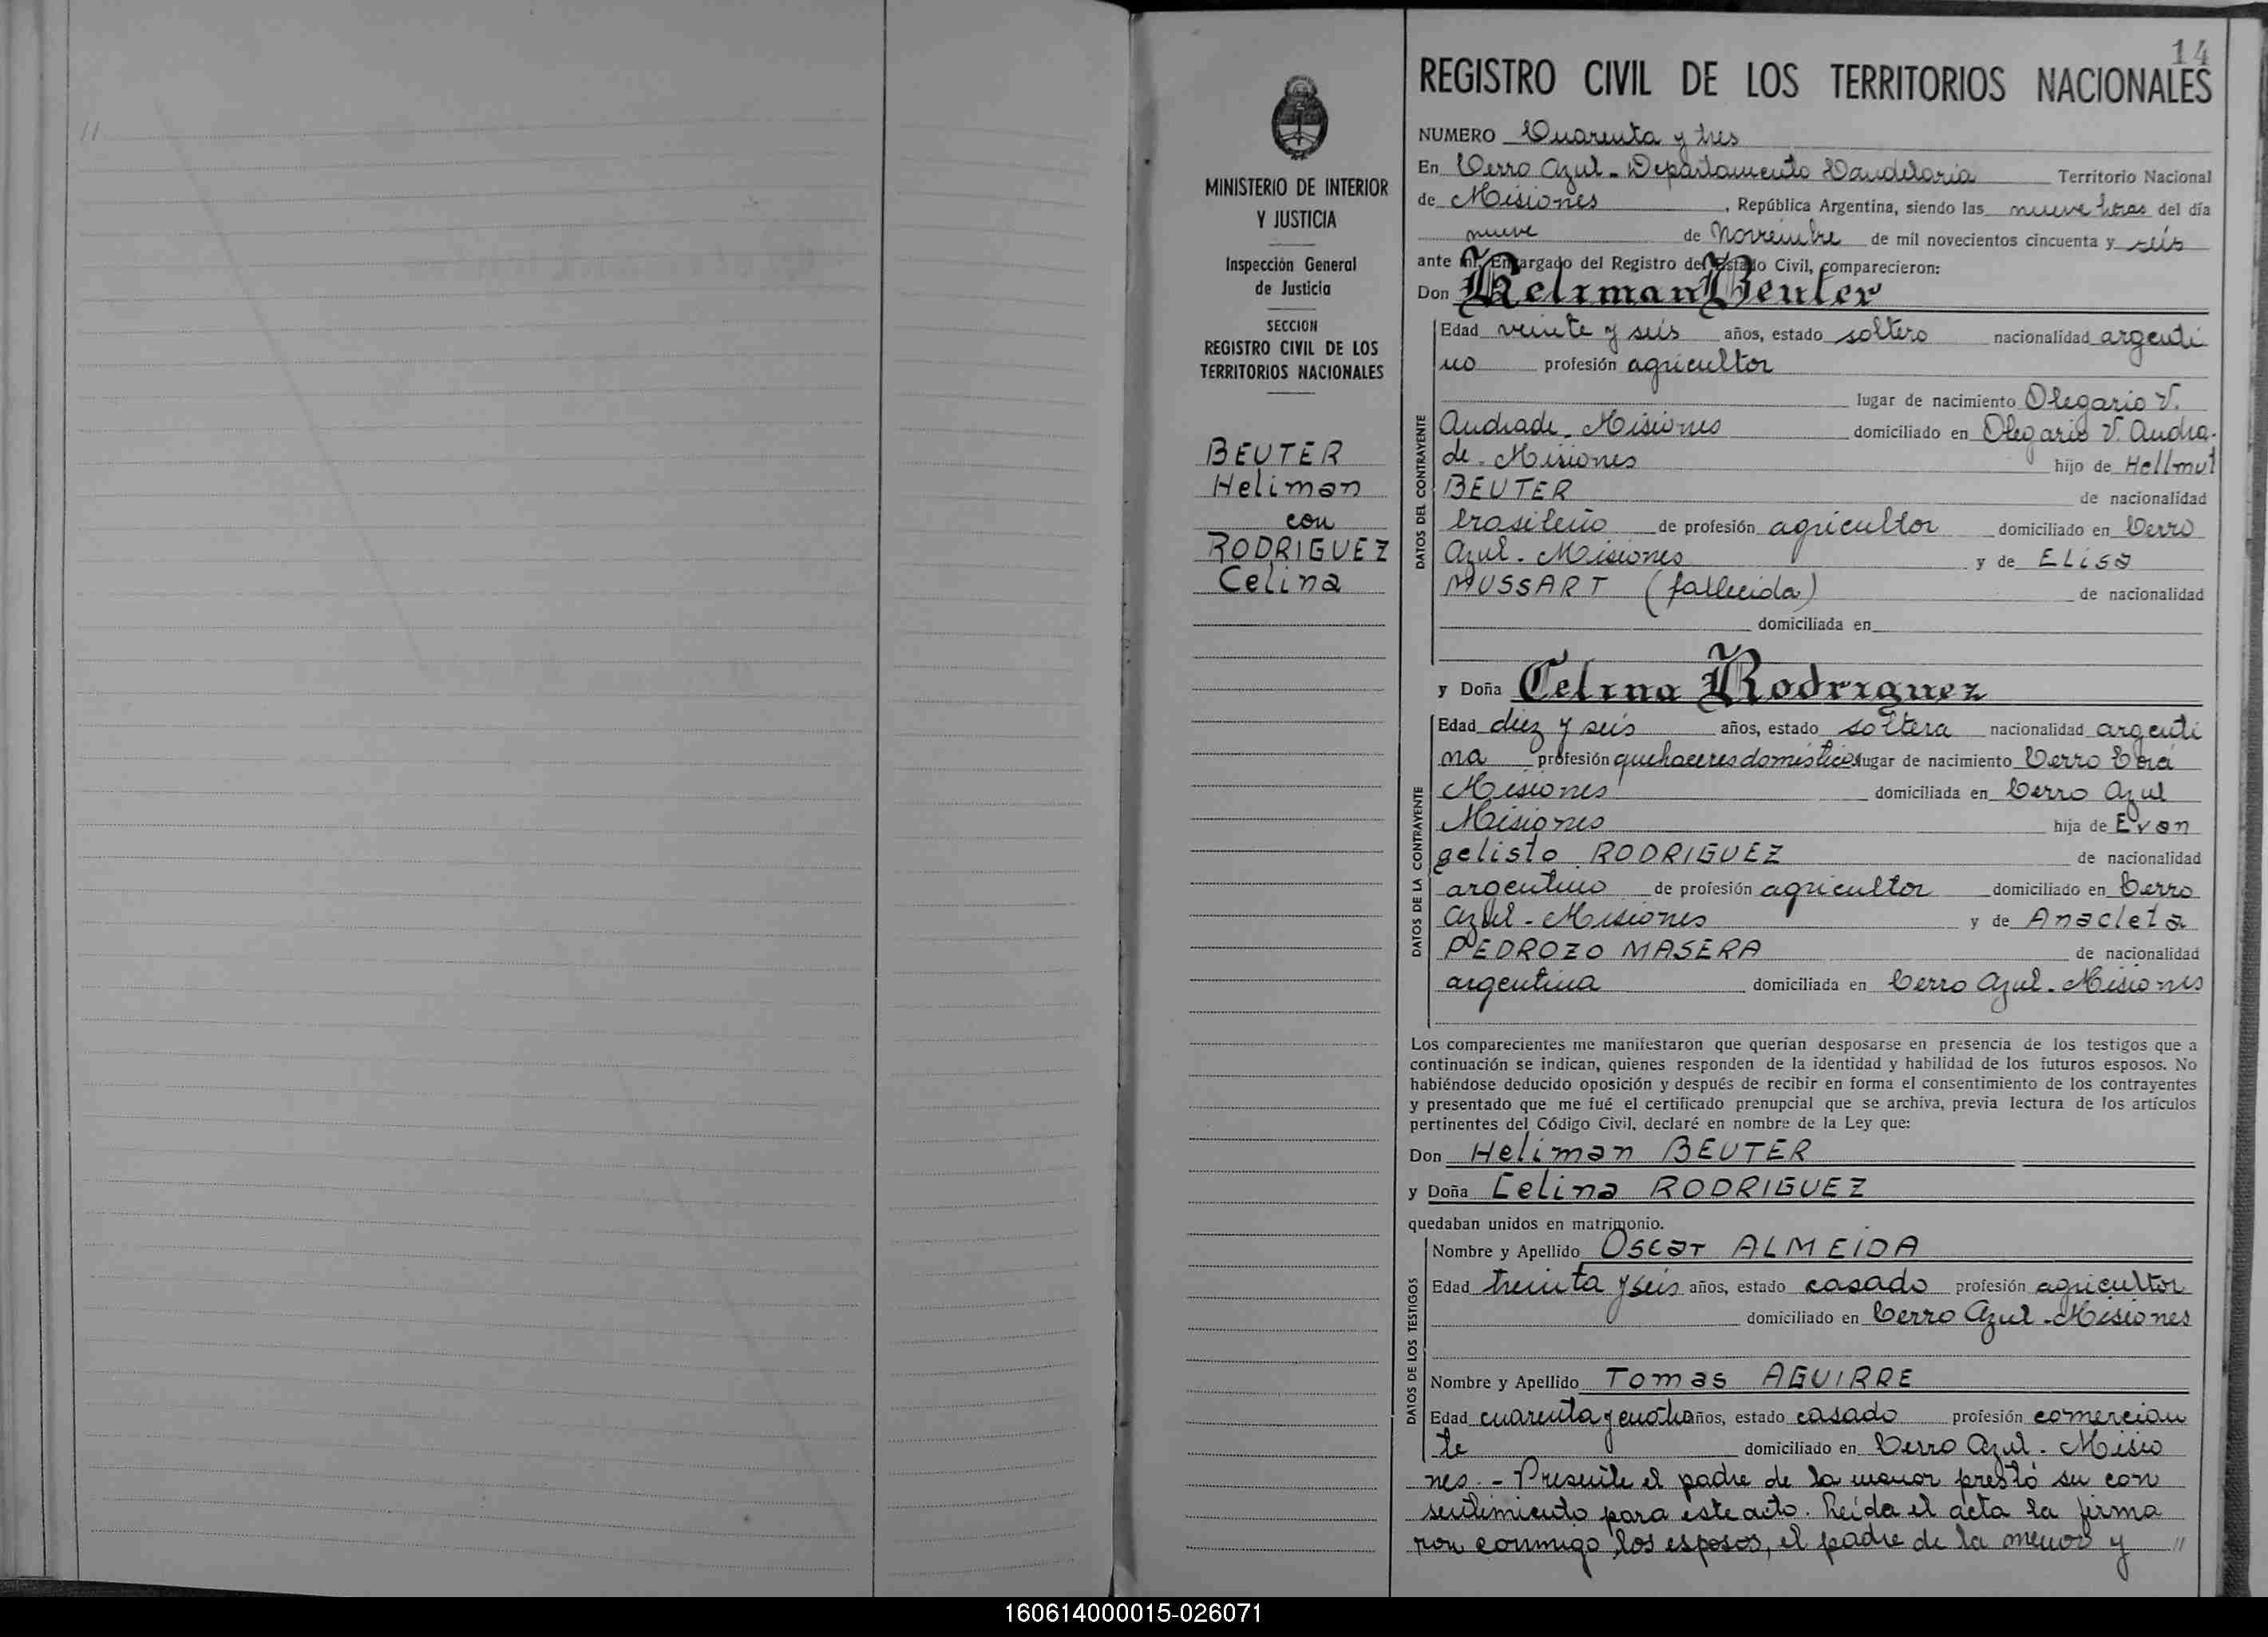 //
14
MINISTERIO DE INTERIOR
Y JUSTICIA
Inspección General
de Justicia
SECCION
REGISTRO CIVIL DE LOS
TERRITORIOS NACIONALES
BEUTER
Heliman
con
RODRIGUEZ
Celina
REGISTRO CIVIL DE LOS TERRITORIOS NACIONALES
NUMERO Cuarenta y tres
En Cerro Azul - Departamento Candelaria Territorio Nacional
de Misiones, República Argentina, siendo las nueve horas del día
nueve de Noviembre de mil novecientos cincuenta y seis
ante mí, Encargado del Registro del Estado Civil, comparecieron:
Don Heliman Beuter
DATOS DEL CONTRAYENTE
Edad veinte y seis años, estado soltero nacionalidad argenti
no profesión agricultor
lugar de nacimiento Olegario V.
Andrade - Misiones domiciliado en Olegario V. Andra-
de - Misiones hijo de Hellmut
BEUTER de nacionalidad
brasileño de profesión agricultor domiciliado en Cerro
Azul - Misiones y de Elisa
MUSSART (fallecida) de nacionalidad
domiciliada en
y Doña Celina Rodriguez
DATOS DE LA CONTRAYENTE
Edad diez y seis años, estado soltera nacionalidad argenti
na profesión quehaceres domésticos lugar de nacimiento Cerro Corá
Misiones domiciliada en Cerro Azul
Misiones hija de Evan
gelisto RODRIGUEZ de nacionalidad
argentino de profesión agricultor domiciliado en Cerro
Azul - Misiones y de Anacleta
PEDROZO MASERA de nacionalidad
argentina domiciliada en Cerro Azul - Misiones
Los comparecientes me manifestaron que querían desposarse en presencia de los testigos que a
continuación se indican, quienes responden de la identidad y habilidad de los futuros esposos. No
habiéndose deducido oposición y después de recibir en forma el consentimiento de los contrayentes
y presentado que me fué el certificado prenupcial que se archiva, previa lectura de los artículos
pertinentes del Código Civil, declaré en nombre de la Ley que:
Don Heliman BEUTER
y Doña Celina RODRIGUEZ
quedaban unidos en matrimonio.
DATOS DE LOS TESTIGOS
Nombre y Apellido Oscar ALMEIDA
Edad treinta y seis años, estado casado profesión agricultor
domiciliado en Cerro Azul - Misiones
Nombre y Apellido Tomas AGUIRRE
Edad cuarenta y cuatro años, estado casado profesión comercian
te domiciliado en Cerro Azul - Misio
nes. - Presente el padre de la menor prestó su con
sentimiento para este acto. Leída el acta la firma
ron conmigo, los esposos, el padre de la menor y //
160614000015-026071